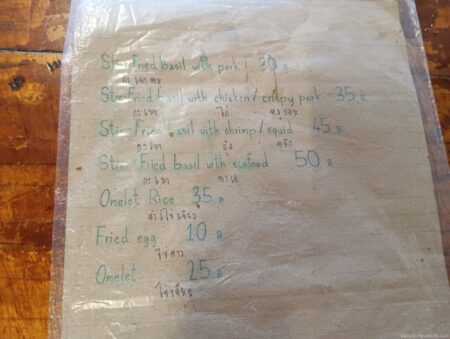 Stir-Fried basil with pork 30 B
กะเพาหมู
Stir-Fried basil with chicken/crispy pork 35 B
กะเพา ไก่ หมูกรอบ
Stir-Fried basil with shrimp/squid 45 B
กะเพา กุ้ง หมึก
Stir-Fried basil with seafood 50 B
กะเพา ทะเล
Omelet Rice 35 B
ข้าวไข่เจียว
Fried egg 10 B
ไข่ดาว
Omelet 25 B
ไข่เจียว